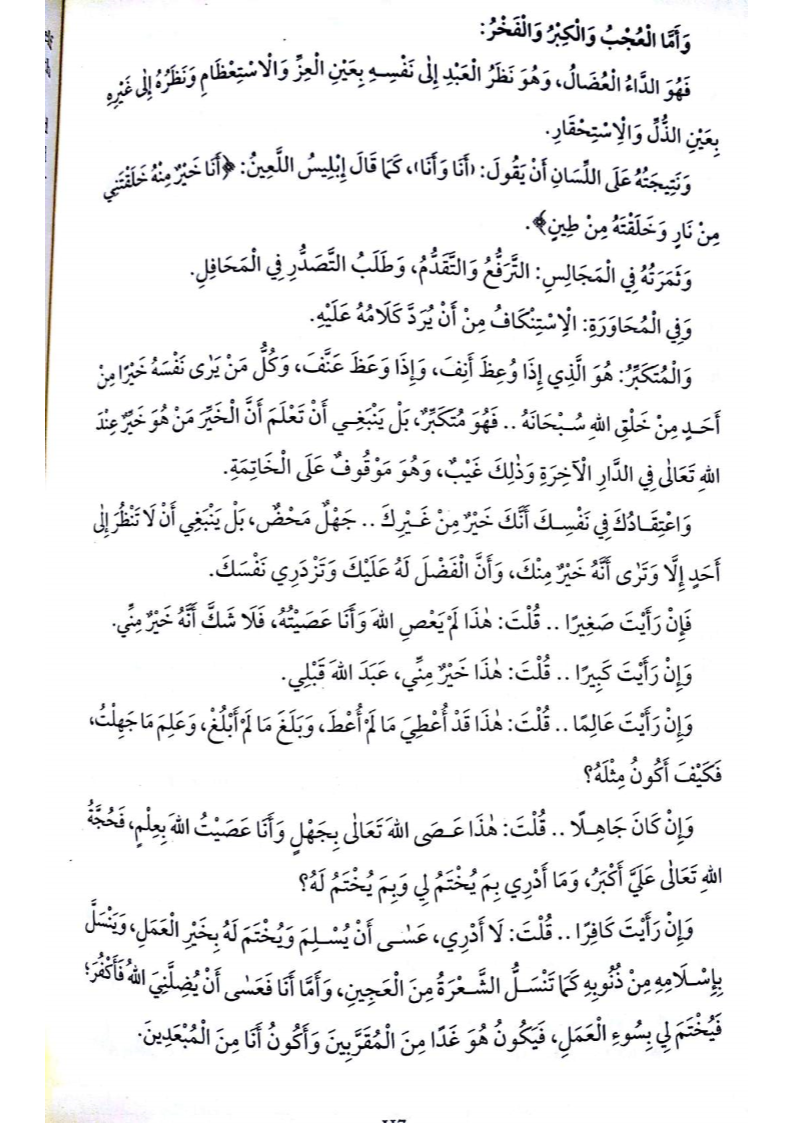 وَأَمَّا الْعُجْبُ وَالْكِبْرُ وَالْفَخْرُ:
فَهُوَ الدَّاءُ الْعُضَالُ، وَهُوَ نَظَرُ الْعَبْدِ إِلَى نَفْسِهِ بِعَيْنِ الْعِزِّ وَالْاسْتِعْظَامِ وَنَظَرُهُ إِلَى غَيْرِهِ
بِعَيْنِ الذُّلِّ وَالْاِسْتِحْقَارِ.
وَنَتِيجَتُهُ عَلَى اللِّسَانِ أَنْ يَقُولَ: (أَنَا وَأَنَا)، كَمَا قَالَ إِبْلِيسُ اللَّعِينُ: ﴿أَنَا خَيْرٌ مِنْهُ خَلَقْتَنِي
مِنْ نَارٍ وَخَلَقْتَهُ مِنْ طِينٍ﴾.
وَثَمَرَتُهُ فِي الْمَجَالِسِ: التَّرَفُّعُ وَالتَّقَدُّمُ، وَطَلَبُ التَّصَدُّرِ فِي الْمَحَافِلِ.
وَفِي الْمُحَاوَرَةِ: الْاِسْتِنْكَافُ مِنْ أَنْ يُرَدَّ كَلَامُهُ عَلَيْهِ.
وَالْمُتَكَبِّرُ: هُوَ الَّذِي إِذَا وُعِظَ أَنِفَ، وَإِذَا وَعَظَ عَنَّفَ، وَكُلُّ مَنْ يَرَى نَفْسَهُ خَيْرًا مِنْ
أَحَدٍ مِنْ خَلْقِ اللهِ سُبْحَانَهُ .. فَهُوَ مُتَكَبِّرٌ، بَلْ يَنْبَغِي أَنْ تَعْلَمَ أَنَّ الْخَيِّرَ مَنْ هُوَ خَيِّرٌ عِنْدَ
اللهِ تَعَالَى فِي الدَّارِ الْآخِرَةِ وَذٰلِكَ غَيْبٌ، وَهُوَ مَوْقُوفٌ عَلَى الْخَاتِمَةِ.
وَاعْتِقَادُكَ فِي نَفْسِكَ أَنَّكَ خَيْرٌ مِنْ غَيْرِكَ .. جَهْلٌ مَحْضٌ، بَلْ يَنْبَغِي أَنْ لَا تَنْظُرَ إِلَى
أَحَدٍ إِلَّا وَتَرَى أَنَّهُ خَيْرٌ مِنْكَ، وَأَنَّ الْفَضْلَ لَهُ عَلَيْكَ وَتَزْدَرِي نَفْسَكَ.
فَإِنْ رَأَيْتَ صَغِيرًا .. قُلْتَ: هٰذَا لَمْ يَعْصِ اللهَ وَأَنَا عَصَيْتُهُ، فَلَا شَكَّ أَنَّهُ خَيْرٌ مِنِّي.
وَإِنْ رَأَيْتَ كَبِيرًا .. قُلْتَ: هٰذَا خَيْرٌ مِنِّي، عَبَدَ اللهَ قَبْلِي.
وَإِنْ رَأَيْتَ عَالِمًا .. قُلْتَ: هٰذَا قَدْ أُعْطِيَ مَا لَمْ أُعْطَ، وَبَلَغَ مَا لَمْ أَبْلُغْ، وَعَلِمَ مَا جَهِلْتُ،
فَكَيْفَ أَكُونُ مِثْلَهُ؟
وَإِنْ كَانَ جَاهِلًا .. قُلْتَ: هٰذَا عَصَى اللهَ تَعَالَى بِجَهْلٍ وَأَنَا عَصَيْتُ اللهَ بِعِلْمٍ، فَحُجَّةُ
اللهِ تَعَالَى عَلَيَّ أَكْبَرُ، وَمَا أَدْرِي بِمَ يُخْتَمُ لِي وَبِمَ يُخْتَمُ لَهُ؟
وَإِنْ رَأَيْتَ كَافِرًا .. قُلْتَ: لَا أَدْرِي، عَسَى أَنْ يُسْلِمَ وَيُخْتَمَ لَهُ بِخَيْرِ الْعَمَلِ، وَيَنْسَلَّ
بِإِسْلَامِهِ مِنْ ذُنُوبِهِ كَمَا تَنْسَلُّ الشَّعْرَةُ مِنَ الْعَجِينِ، وَأَمَّا أَنَا فَعَسَى أَنْ يُضِلَّنِيَ اللهُ فَأَكْفُرَ؛
فَيُخْتَمَ لِي بِسُوءِ الْعَمَلِ، فَيَكُونُ هُوَ غَدًا مِنَ الْمُقَرَّبِينَ وَأَكُونُ أَنَا مِنَ الْمُبْعَدِينَ.